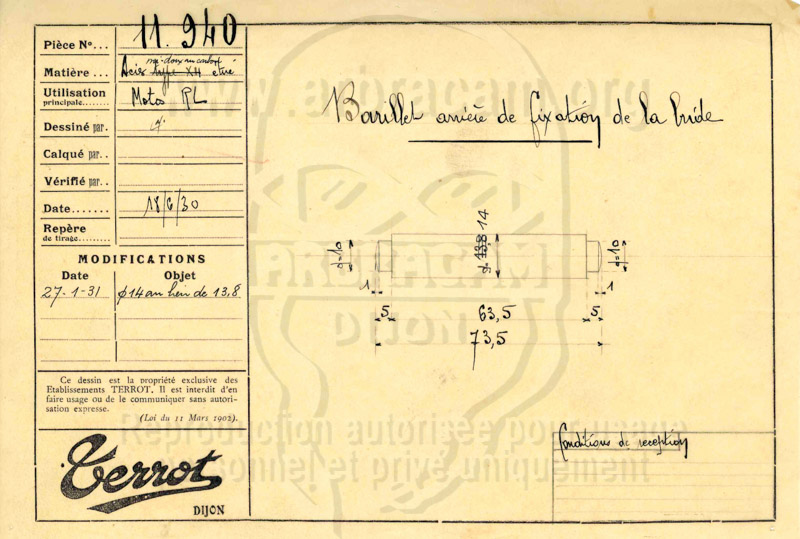 Pièce Nº... 11.940
mi-doux au carbone
Matière ... Acier type XH étiré
Utilisation
principale........ Motos RL
Dessiné par.
Calqué par..
Vérifié par..
Date....... 18/6/30
Repère
de tirage..........
MODIFICATIONS
Date Objet
27-1-31 φ 14 au lieu de 13,8
Ce dessin est la propriété exclusive des
Etablissements TERROT. Il est interdit d'en
faire usage ou de le communiquer sans autori-
sation expresse.
(Loi du 11 Mars 1902).
Terrot
DIJON
Barillet arrière de fixation de la bride
d=10
d=13,8 14
d=10
1
1
5 63,5 5
73,5
Conditions de réception
www.arbracam.org
ARBRACAM
DIJON
Reproduction autorisée pour usage
personnel et privé uniquement